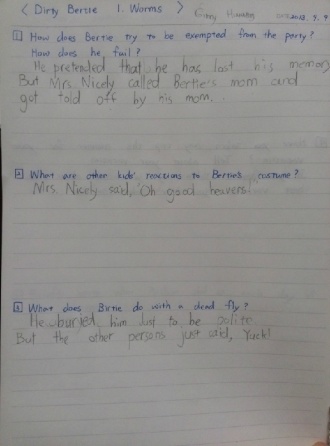 < Dirty Bertie 1. Worms >
2013. 5. 9
1 How does Bertie try to be exempted from the party?
How does he fail?
He pretended that he has lost his memory
But Mrs Nicely called Bertie's mom and
got told off by his mom...
2 What are other kids' reactions to Bertie's costume?
Mrs. Nicely said, "Oh good heavens!"
3 What does Birtie do with a dead fly?
He buried him Just to be polite
But the other persons just said, Yuck!